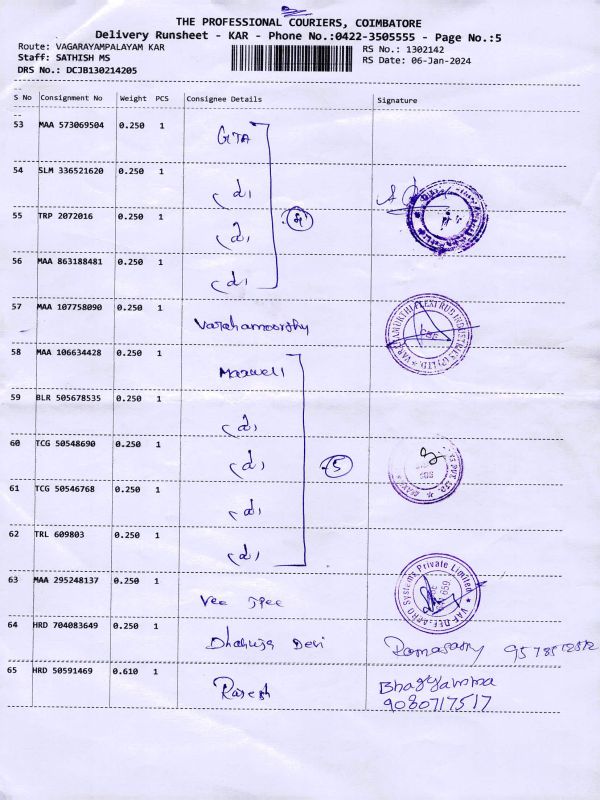 THE PROFESSIONAL COURIERS, COIMBATORE
Delivery Runsheet - KAR - Phone No.:0422-3505555 - Page No.:5
Route: VAGARAYAMPALAYAM KAR
RS No.: 1302142
Staff: SATHISH MS
RS Date: 06-Jan-2024
DRS No.: DCJB130214205
S No Consignment No Weight PCS Consignee Details Signature
53 MAA 573069504 0.250 1 GTA
54 SLM 336521620 0.250 1
55 TRP 2072016 0.250 1
56 MAA 863188481 0.250 1
57 MAA 107758090 0.250 1 Varahamoorthy
58 MAA 106634428 0.250 1 Maxwell
59 BLR 505678535 0.250 1
60 TCG 50548690 0.250 1 5
61 TCG 50546768 0.250 1
62 TRL 609803 0.250 1
63 MAA 295248137 0.250 1 Vee
64 HRD 704083649 0.250 1 Dhanuja Devi Ramasamy
65 HRD 50591469 0.610 1 Rajesh Bhagyamma
9080717517